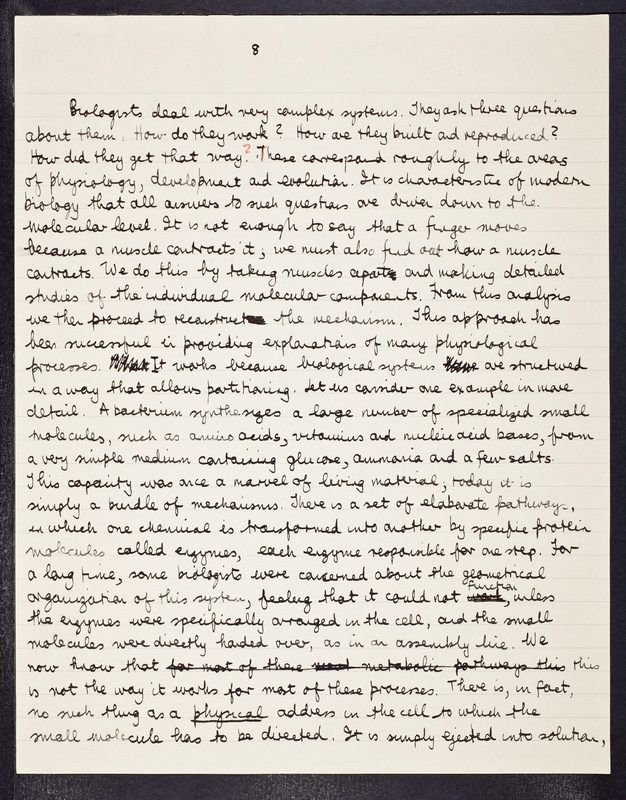 8
Biologists deal with very complex systems. They ask three questions
about them. How do they work? How are they built and reproduced?
How did they get that way? These correspond roughly to the areas
of physiology, development and evolution. It is characteristic of modern
biology that all answers to such questions are driven down to the
molecular level. It is not enough to say that a finger moves
because a muscle contracts it; we must also find out how a muscle
contracts. We do this by taking muscles apart and making detailed
studies of the individual molecular components. From this analysis
we then proceed to reconstruct the mechanism. This approach has
been successful in providing explanations of many physiological
processes. It works because biological systems are structured
in a way that allows partitioning. Let us consider one example in more
detail. A bacterium synthesizes a large number of specialized small
molecules, such as amino acids, vitamins and nucleic acid bases, from
a very simple medium containing glucose, ammonia and a few salts.
This capacity was once a marvel of living material; today it is
simply a bundle of mechanisms. There is a set of elaborate pathways,
in which one chemical is transformed into another by specific protein
molecules called enzymes, each enzyme responsible for one step. For
a long time, some biologists were concerned about the geometrical
organization of this system, feeling that it could not work function, unless
the enzymes were specifically arranged in the cell, and the small
molecules were directly handed over, as in an assembly line. We
now know that for most of these metabolic pathways this this
is not the way it works for most of these processes. There is, in fact,
no such thing as a physical address in the cell to which the
small molecule has to be directed. It is simply ejected into solution,